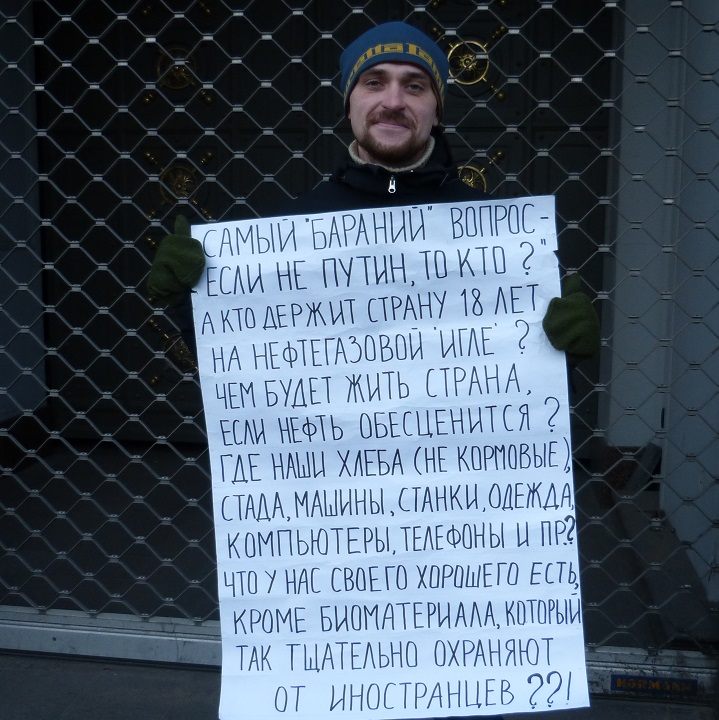 САМЫЙ "БАРАНИЙ" ВОПРОС -
"ЕСЛИ НЕ ПУТИН, ТО КТО ?"
А КТО ДЕРЖИТ СТРАНУ 18 ЛЕТ
НА НЕФТЕГАЗОВОЙ "ИГЛЕ" ?
ЧЕМ БУДЕТ ЖИТЬ СТРАНА,
ЕСЛИ НЕФТЬ ОБЕСЦЕНИТСЯ ?
ГДЕ НАШИ ХЛЕБА (НЕ КОРМОВЫЕ),
СТАДА, МАШИНЫ, СТАНКИ, ОДЕЖДА,
КОМПЬЮТЕРЫ, ТЕЛЕФОНЫ И ПР.?
ЧТО У НАС СВОЕГО ХОРОШЕГО ЕСТЬ,
КРОМЕ БИОМАТЕРИАЛА, КОТОРЫЙ
ТАК ТЩАТЕЛЬНО ОХРАНЯЮТ
ОТ ИНОСТРАНЦЕВ ??!
HÖRMANN